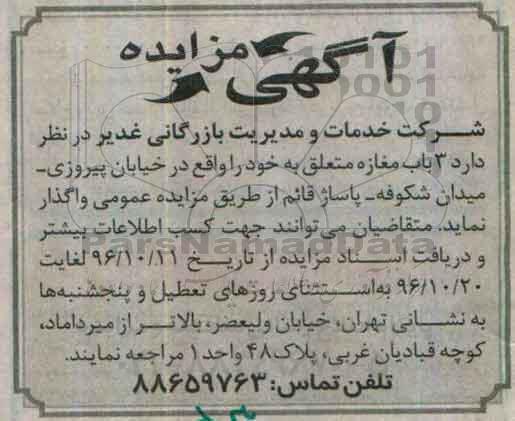 آگهی مزایده
شرکت خدمات و مدیریت بازرگانی غدیر در نظر
دارد ۳ باب مغازه متعلق به خود را واقع در خیابان پیروزی-
میدان شکوفه- پاساژ قائم از طریق مزایده عمومی واگذار
نماید. متقاضیان می‌توانند جهت کسب اطلاعات بیشتر
ParsNamadData
و دریافت اسناد مزایده از تاریخ ۹۶/۱۰/۱۱ لغایت
۹۶/۱۰/۲۰ به‌استثنای روزهای تعطیل و پنجشنبه‌ها
به نشانی تهران، خیابان ولیعصر، بالاتر از میرداماد،
کوچه قبادیان غربی، پلاک ۴۸ واحد ۱ مراجعه نمایند.
تلفن تماس: ۸۸۶۵۹۷۶۳